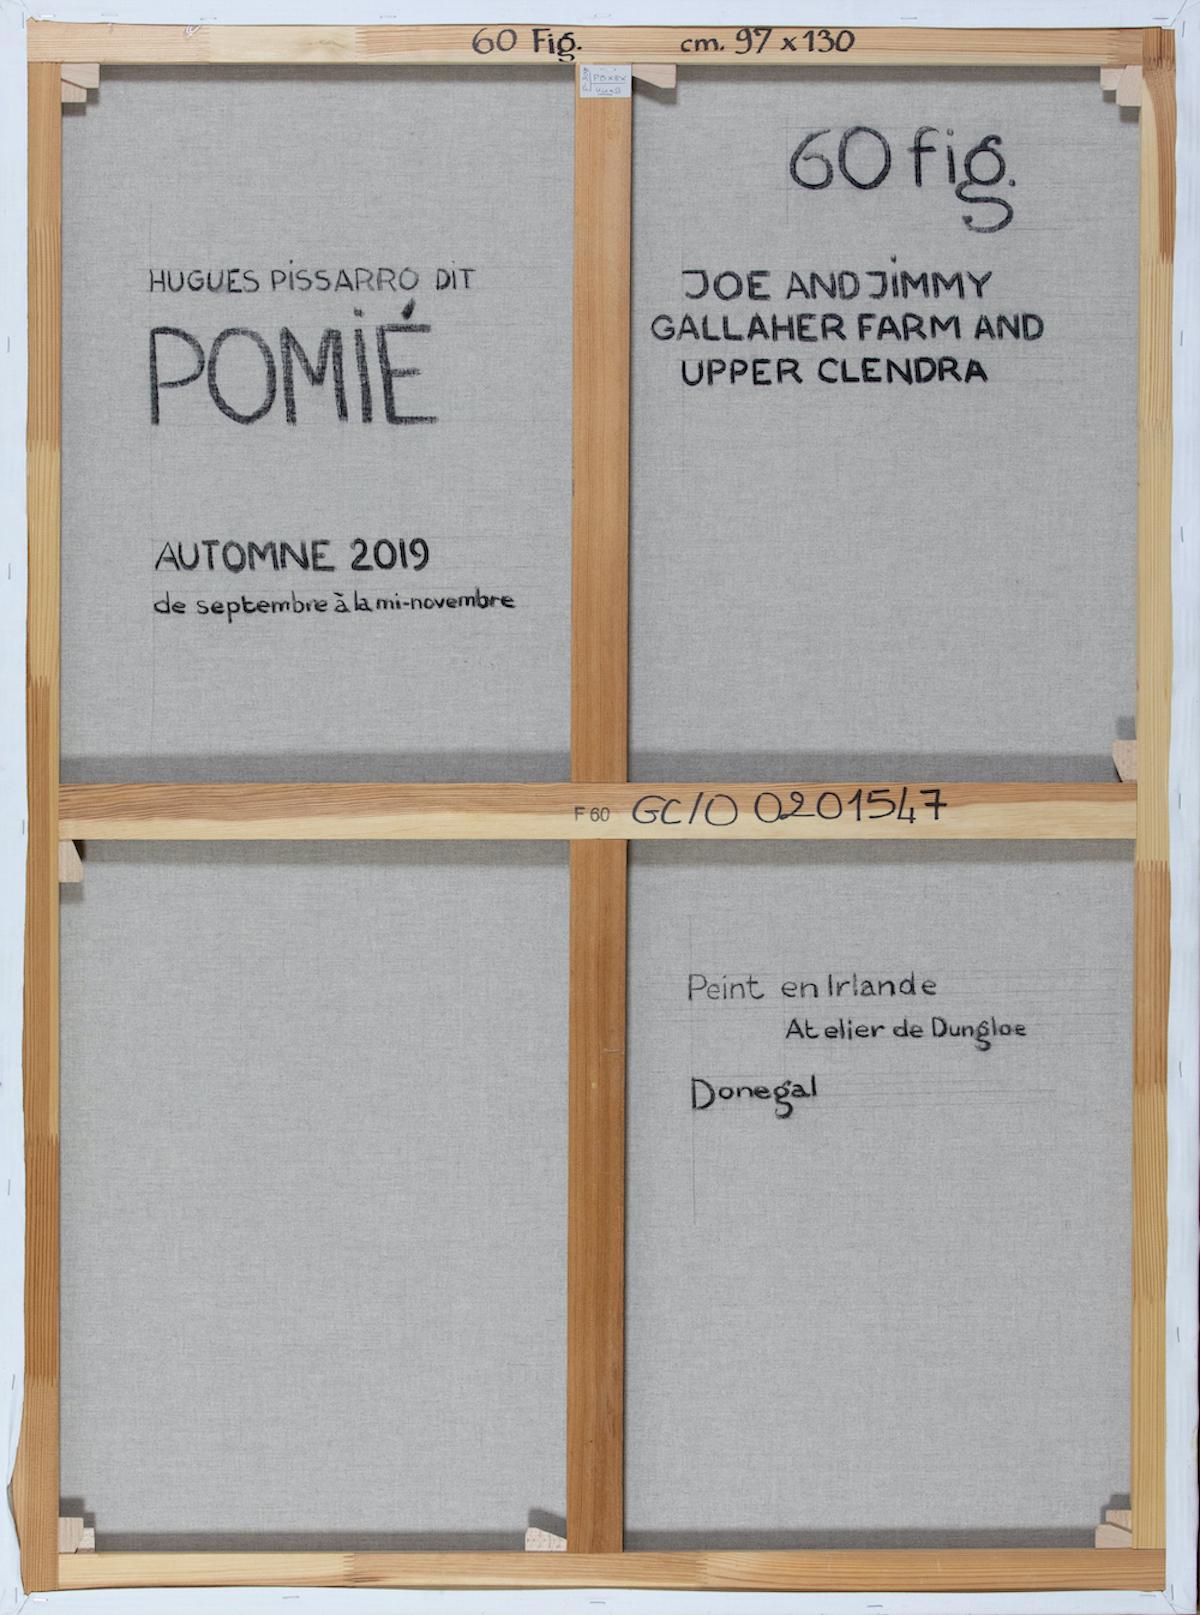 60 Fig. cm. 97 x 130
60 fig.
HUGUES PiSSARRO DiT
POMiÉ
AUTOMNE 2019
de septembre à la mi-novembre
JOE AND JiMMY
GALLAHER FARM AND
UPPER CLENDRA
F 60 GC/O 0201547
Peint en Irlande
Atelier de Dungloe
Donegal